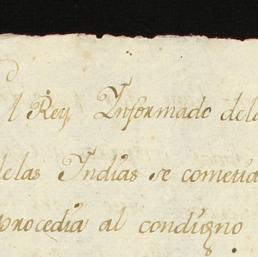 l Rey, Informado dela
delas Indias se cometia
procedia al condigno